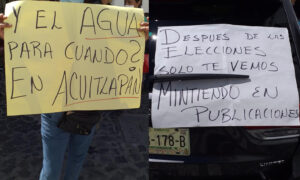 Y EL AGUA
PARA CUANDO?
EN ACUITLAPÁN
DESPUES DE LAS
ELECCIONES
SOLO TE VEMOS
MINTIENDO EN
PUBLICACIONES
-178-B